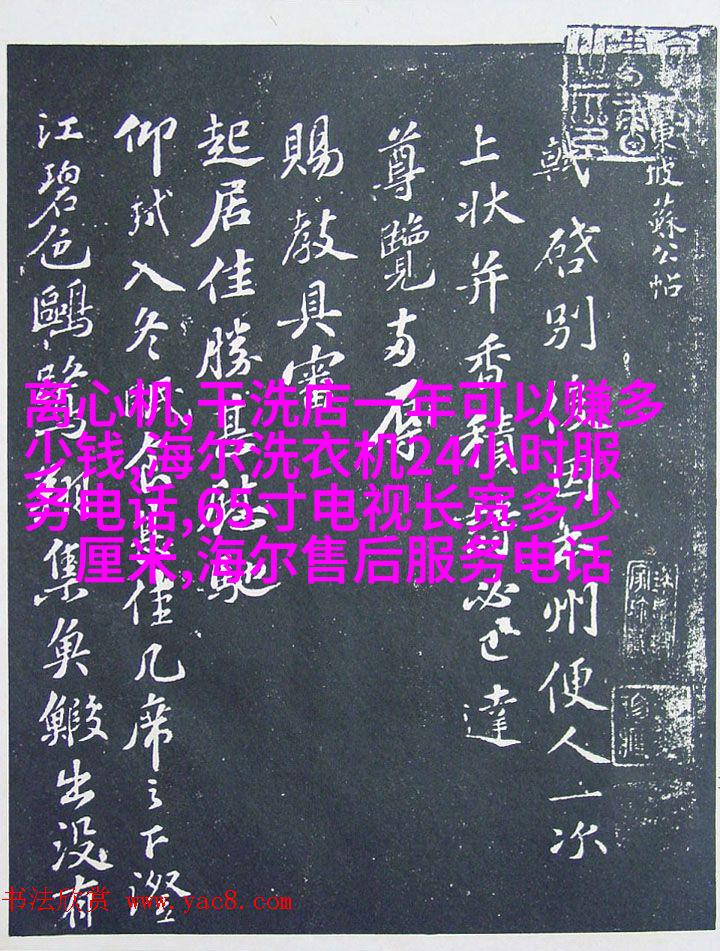 東坡蘇公帖
軾啓別因本州便人一次
上状并香積必已達
尊覽辱
賜教具審
起居佳勝甚慰馳
仰軾入冬眠食甚佳几席之下澄
江碧色鷗鷺翔集魚鰕出没有
离心机,干洗店一年可以赚多
少钱,海尔洗衣机24小时服
务电话,65寸电视长宽多少
厘米,海尔售后服务电话
书法欣赏 www.yac8.com